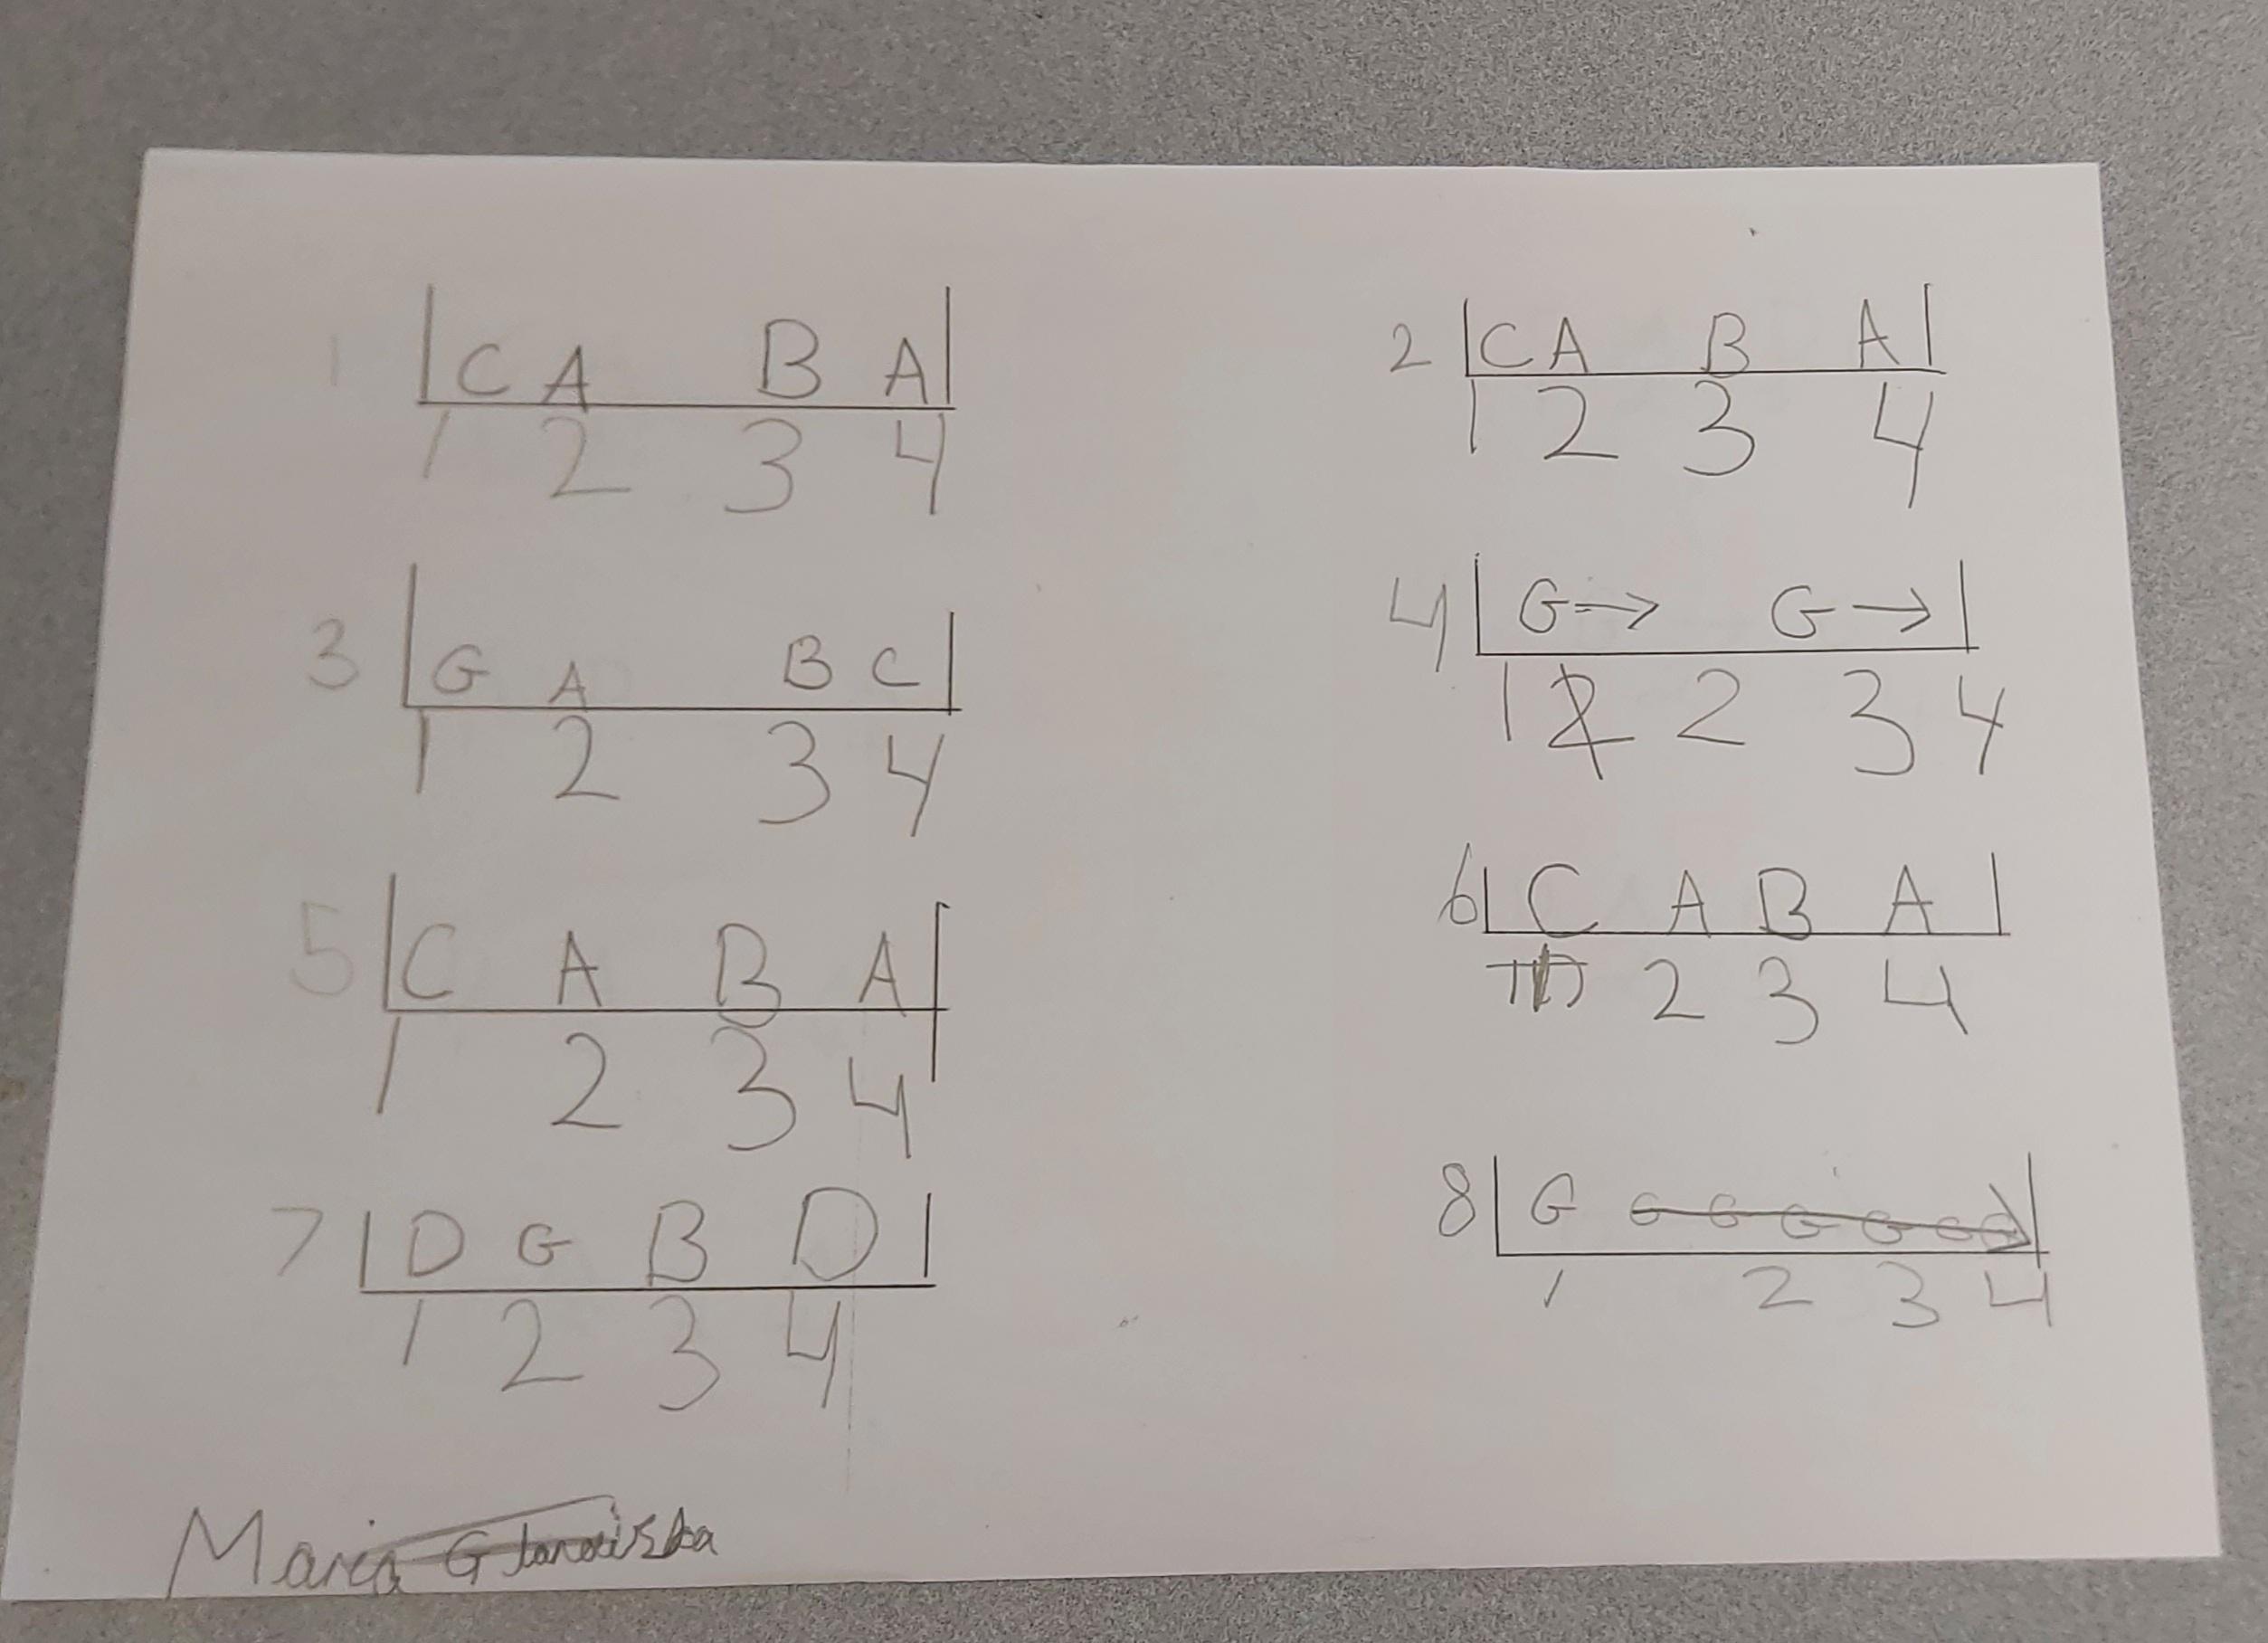 1 C A B A
1 2 3 4
2 C A B A
1 2 3 4
3 G A B C
1 2 3 4
4 G → G →
1 2 2 3 4
5 C A B A
1 2 3 4
6 C A B A
2 3 4
7 D G B D
1 2 3 4
8 G G G G G G G
1 2 3 4
Maria